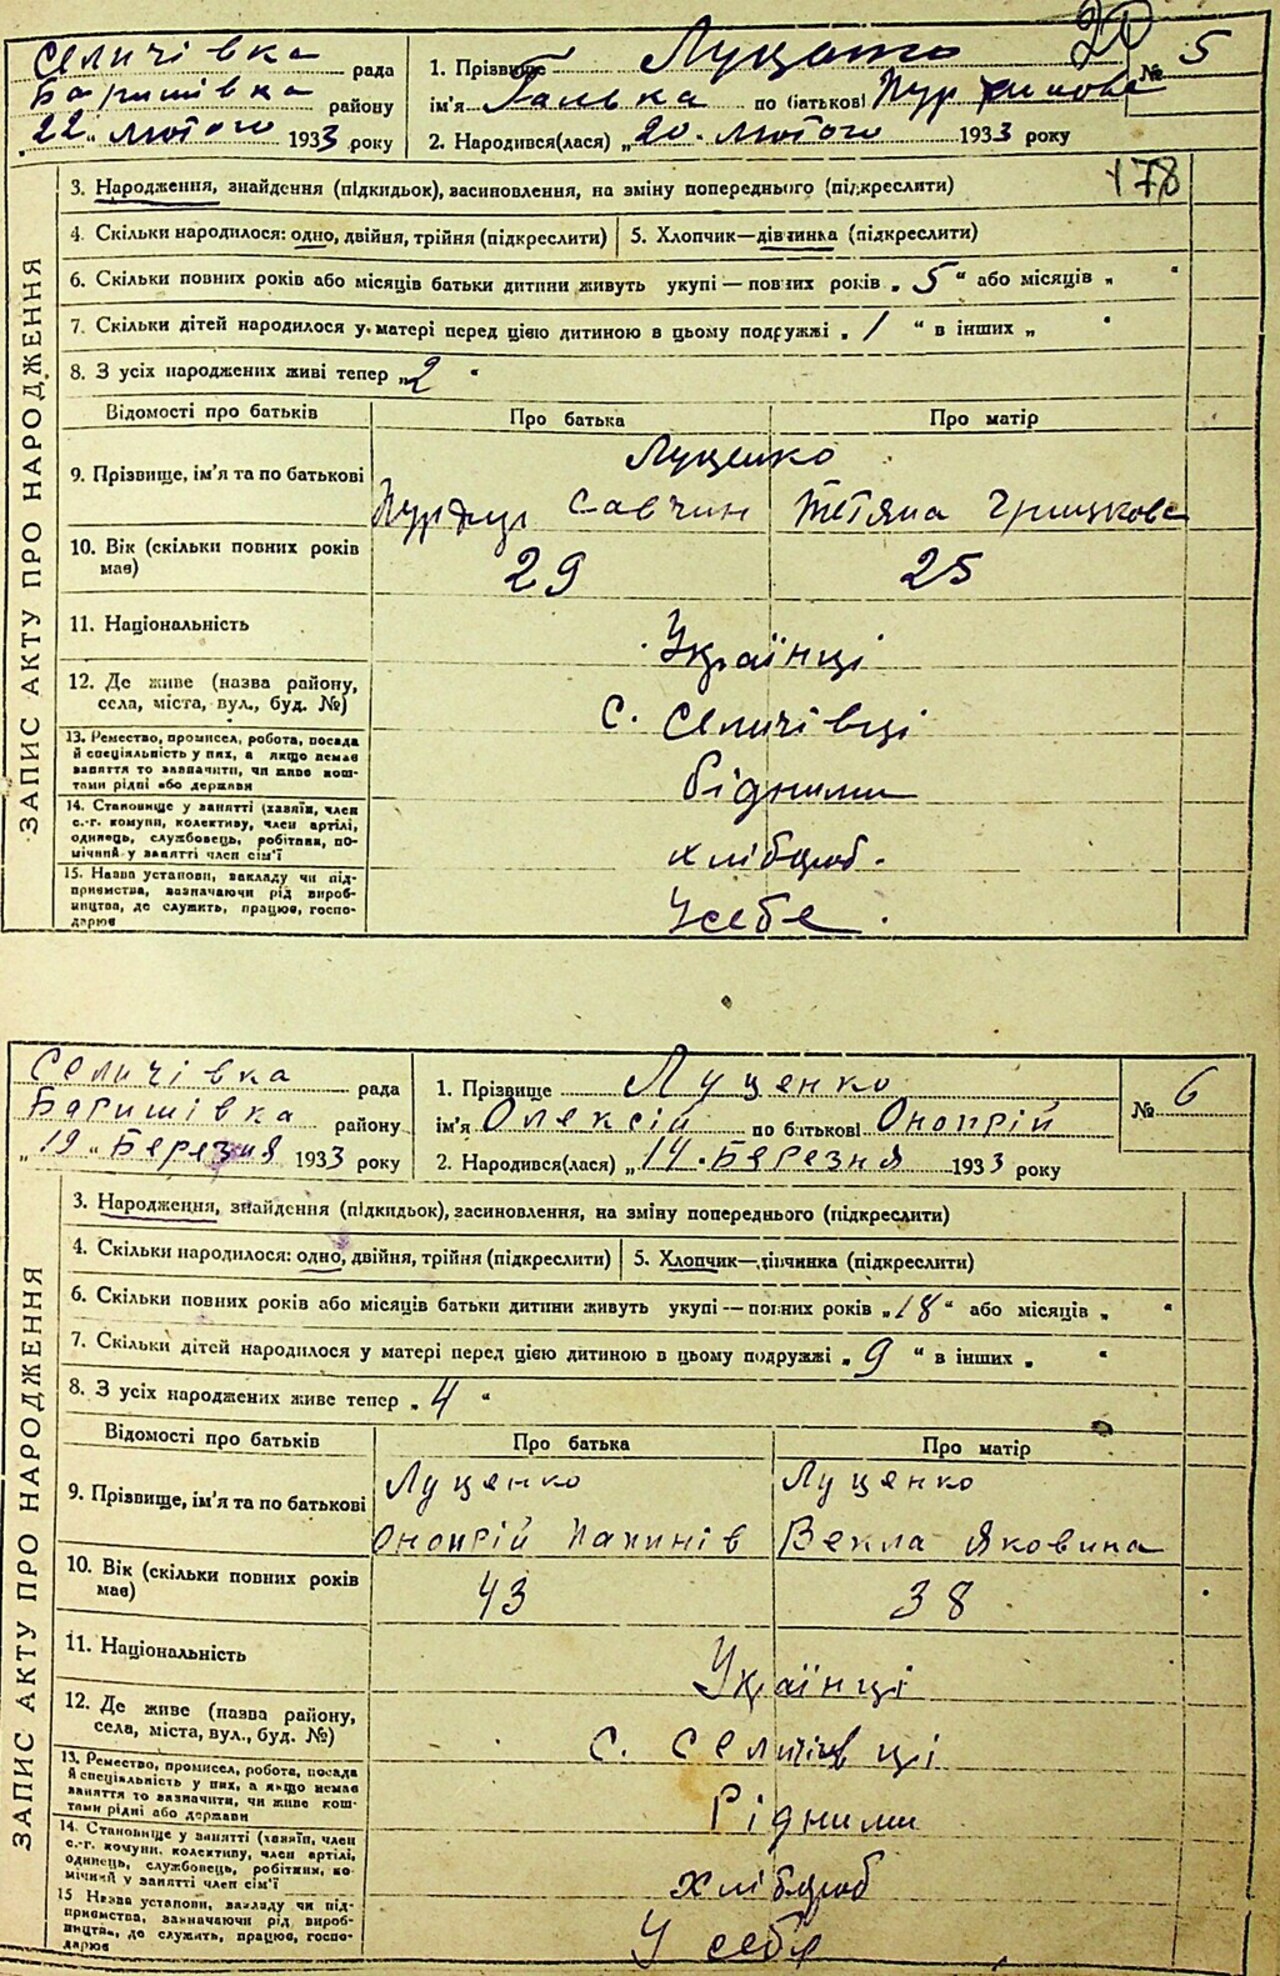 20
Селичівка рада
Баришівка району
„22“ лютого 1933 року
1. Прізвище Луценко
№ 5
ім'я Галька по батькові
2. Народився(лася) „20. лютого 1933 року
178
ЗАПИС АКТУ ПРО НАРОДЖЕННЯ
3. Народження, знайдення (підкидьок), засиновлення, на зміну попереднього (підкреслити)
4. Скільки народилося: одно, двійня, трійня (підкреслити)
5. Хлопчик—дівчинка (підкреслити)
6. Скільки повних років або місяців батьки дитини живуть укупі — повних років „5“ або місяців „ “
7. Скільки дітей народилося у матері перед цією дитиною в цьому подружжі „1“ в інших „ “
8. З усіх народжених живі тепер „2“
Відомості про батьків
Про батька
Про матір
9. Прізвище, ім'я та по батькові
Луценко
Савчин
Тетяна Грицкова
10. Вік (скільки повних років має)
29
25
11. Національність
Українці
12. Де живе (назва району,
села, міста, вул., буд. №)
с. Селичівці
13. Ремество, промисел, робота, посада
й спеціяльність у них, а якщо немає
заняття то зазначити, чи живе кош-
тами рідні або держави
рідними
14. Становище у занятті (хазяїн, член
с.-г. комуни, колективу, член артілі,
одинець, службовець, робітник, по-
мічний у занятті член сім'ї
хлібороб.
15. Назва установи, закладу чи під-
приємства, зазначаючи рід вироб-
ництва, де служить, працює, госпо-
дарює
У себе.
Селичівка рада
Баришівка району
„19“ Березня 1933 року
1. Прізвище Луценко
№ 6
ім'я Олексій по батькові Оноприй
2. Народився(лася) „14. Березня 1933 року
ЗАПИС АКТУ ПРО НАРОДЖЕННЯ
3. Народження, знайдення (підкидьок), засиновлення, на зміну попереднього (підкреслити)
4. Скільки народилося: одно, двійня, трійня (підкреслити)
5. Хлопчик—дівчинка (підкреслити)
6. Скільки повних років або місяців батьки дитини живуть укупі — повних років „18“ або місяців „ “
7. Скільки дітей народилося у матері перед цією дитиною в цьому подружжі „9“ в інших „ “
8. З усіх народжених живе тепер „4“
Відомості про батьків
Про батька
Про матір
9. Прізвище, ім'я та по батькові
Луценко
Луценко
Оноприй
Векла Яковина
10. Вік (скільки повних років має)
43
38
11. Національність
Українці
12. Де живе (назва району,
села, міста, вул., буд. №)
с. Селичівці
13. Ремество, промисел, робота, посада
й спеціяльність у них, а якщо немає
заняття то зазначити, чи живе кош-
тами рідні або держави
Рідними
14. Становище у занятті (хазяїн, член
с.-г. комуни, колективу, член артілі,
одинець, службовець, робітник, по-
мічний у занятті член сім'ї
хлібороб
15 Назва установи, закладу чи під-
приємства, зазначаючи рід вироб-
ництва, де служить, працює, госпо-
дарює
У себе